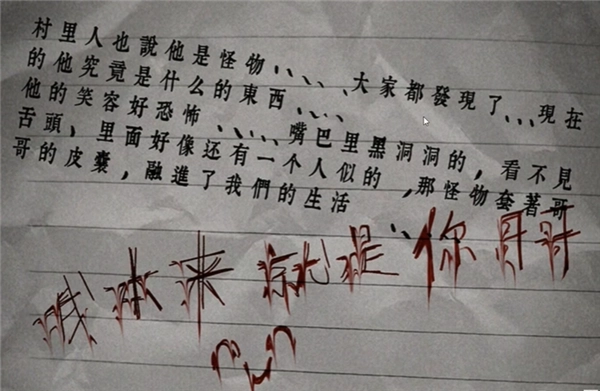 村里人也說他是怪物、、、、、大家都發現了、、、現在
的他究竟是什么的東西、、、、
他的笑容好恐怖、、、、嘴巴里黑洞洞的，看不見
舌頭，里面好像还有一个人似的，那怪物套著哥
哥的皮囊，融進了我們的生活
我本来就是你哥哥